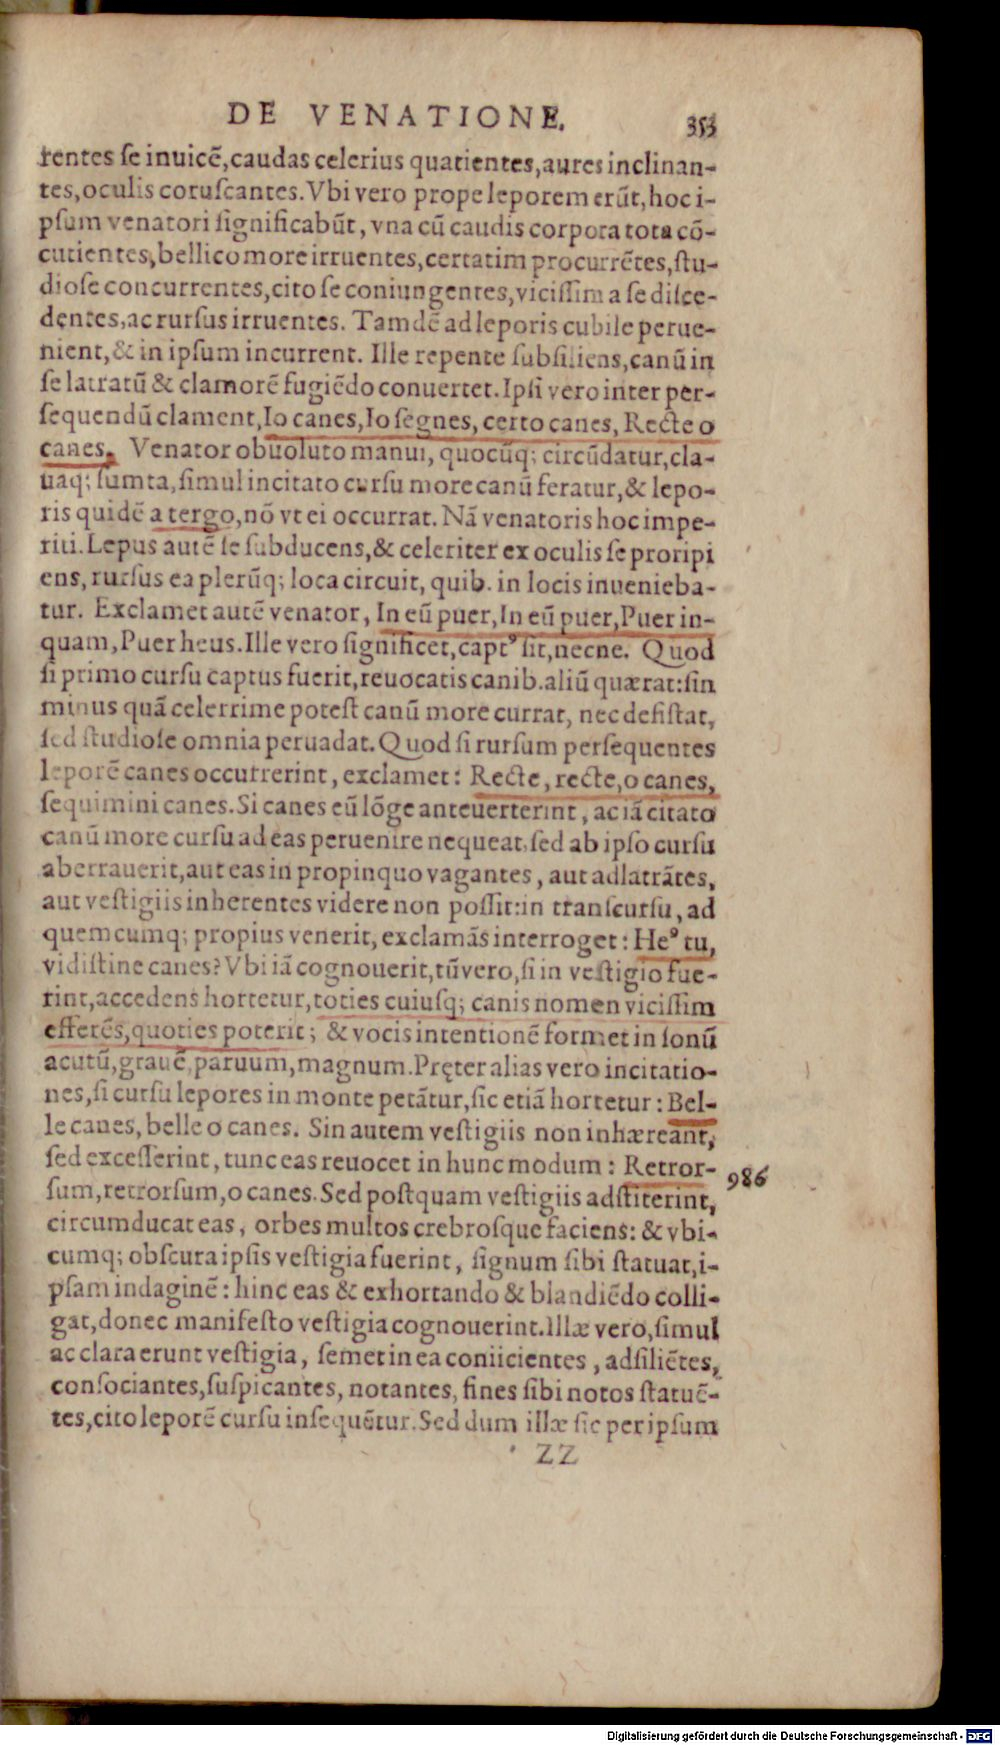 DE VENATIONE. 353
rentes se inuicẽ,caudas celerius quatientes,aures inclinan-
tes,oculis coruscantes.Vbi vero prope leporem erũt,hoc i-
psum venatori significabũt, vna cũ caudis corpora tota cõ-
cutientes,bellico more irruentes,certatim procurrẽtes,stu-
diose concurrentes,cito se coniungentes,vicissim a se disce-
dentes,ac rursus irruentes. Tamdẽ ad leporis cubile perue-
nient,& in ipsum incurrent. Ille repente subsiliens,canũ in
se latratũ & clamorẽ fugiẽdo conuertet.Ipsi vero inter per-
sequendũ clament,Io canes,Io segnes, certo canes, Recte o
canes. Venator obuoluto manui, quocũq; circũdatur,cla-
uaq; sumta,simul incitato cursu more canũ feratur,& lepo-
ris quidẽ a tergo,nõ vt ei occurrat. Nã venatoris hoc impe-
riti.Lepus autẽ se subducens,& celeriter ex oculis se proripi
ens, rursus ea plerũq; loca circuit, quib. in locis inuenieba-
tur. Exclamet autẽ venator, In eũ puer,In eũ puer,Puer in-
quam,Puer heus.Ille vero significet,capt⁹ sit,necne. Quod
si primo cursu captus fuerit,reuocatis canib.aliũ quærat:sin
minus quã celerrime potest canũ more currat, nec desistat,
sed studiose omnia peruadat.Quod si rursum persequentes
leporẽ canes occurrerint, exclamet: Recte, recte,o canes,
sequimini canes.Si canes eũ lõge anteuerterint, ac iã citato
canũ more cursu ad eas peruenire nequeat,sed ab ipso cursu
aberrauerit,aut eas in propinquo vagantes, aut adlatrãtes,
aut vestigiis inherentes videre non possit:in transcursu, ad
quemcumq; propius venerit, exclamãs interroget: He⁹ tu,
vidistine canes? Vbi iã cognouerit,tũ vero,si in vestigio fue-
rint,accedens hortetur,toties cuiusq; canis nomen vicissim
efferẽs,quoties poterit; & vocis intentionẽ formet in sonũ
acutũ,grauẽ,paruum,magnum.Pręter alias vero incitatio-
nes,si cursu lepores in monte petãtur,sic etiã hortetur: Bel-
le canes, belle o canes. Sin autem vestigiis non inhæreant,
sed excesserint, tunc eas reuocet in hunc modum: Retror-
986
sum,retrorsum,o canes.Sed postquam vestigiis adstiterint,
circumducat eas, orbes multos crebrosque faciens: & vbi-
cumq; obscura ipsis vestigia fuerint, signum sibi statuat,i-
psam indaginẽ: hinc eas & exhortando & blandiẽdo colli-
gat,donec manifesto vestigia cognouerint.Illæ vero,simul
ac clara erunt vestigia, semet in ea coniicientes, adsiliẽtes,
consociantes,suspicantes, notantes, fines sibi notos statuẽ-
tes,cito leporẽ cursu insequẽtur.Sed dum illæ sic per ipsum
ZZ
Digitalisierung gefördert durch die Deutsche Forschungsgemeinschaft - DFG